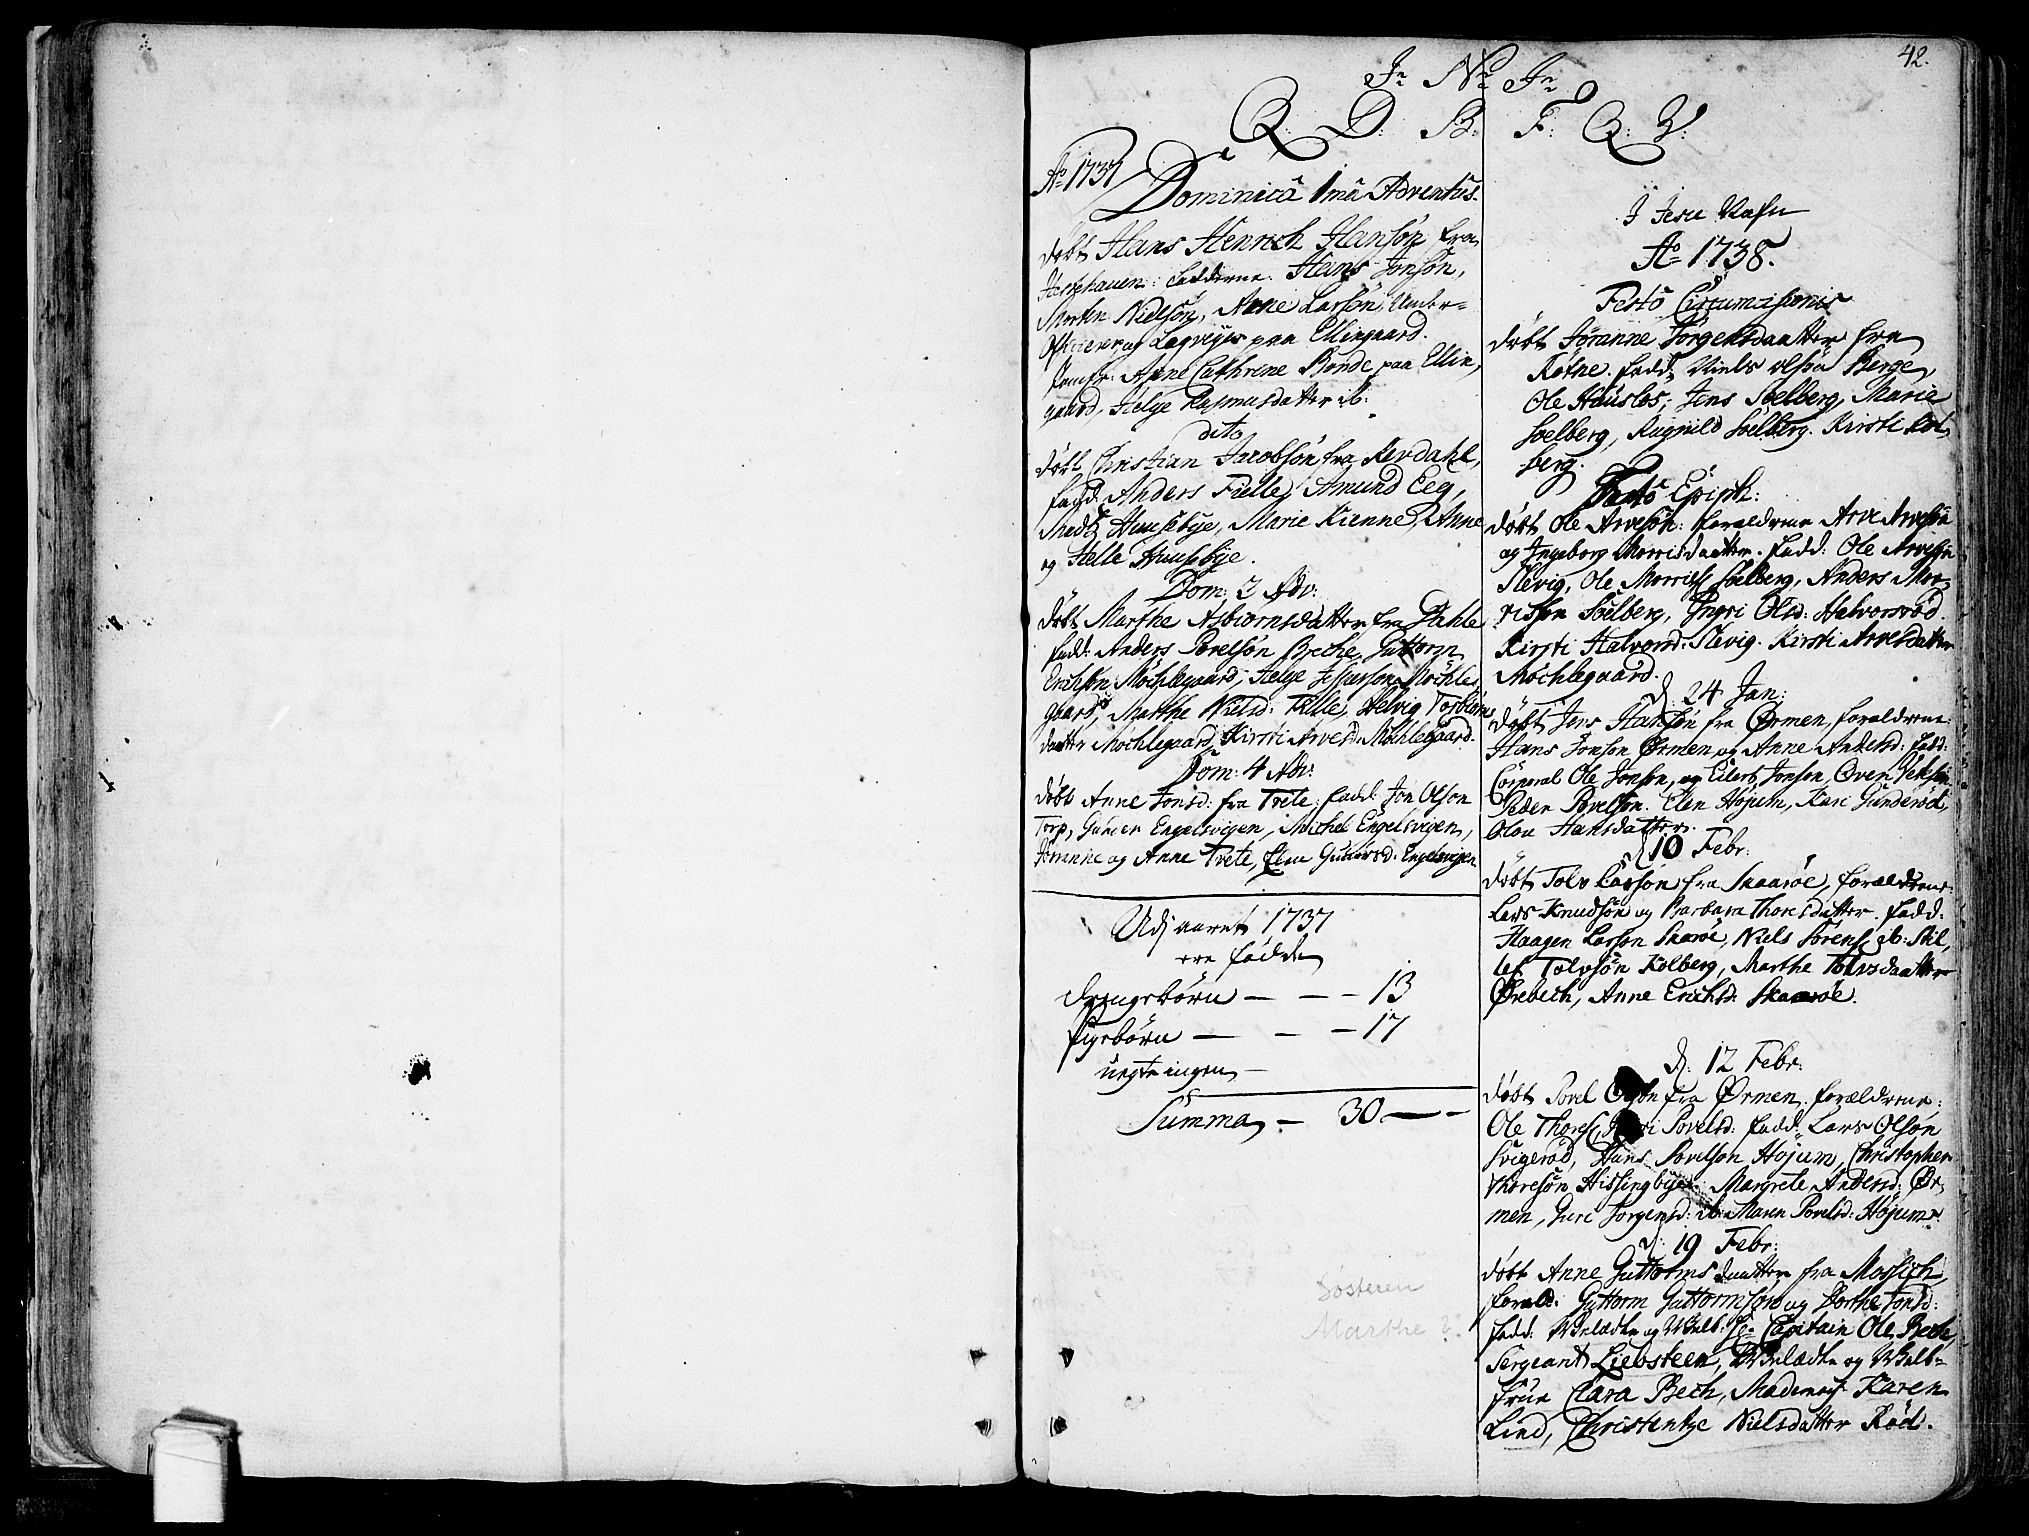 42.
Jn Nn Jn
Q: D: B: F: Q: V:
Ao 1737
Dominica 1ma Adventus.
døbt Hans Henrich Hansøn fra
fadderne. Hans Jonsøn,
Morten Nielsøn, Anne Larsøn, Under-
Officerer og Logvigs paa Ellingaard.
Jomfr: Anne Cathrine Bonde paa Ellin,
gaard, Helge Rasmusdatter ib:
dito
døbt Christian Jacobsøn fra Kerdahl,
fadd: Anders Fielle, Amund Eeg,
Madz Huusebye, Marie Kienne, Anne
og Helle Huusebye.
Dom: 2 Adv:
døbt Marthe Asbiornsdatter fra Dahle
fadd: Anders Povelsøn Beche, Guttorm
Erichsøn Møchlegaard, Helge Møchle,
gaard, Marthe Nielsd: Fielle, Helvig Torbiørns
datter Møchlegaard, Kirsti Arvesd: Møchlegaard.
Dom: 4 Adv:
døbt Anne Jonsd: fra Trete: fadd: Jon Olson
Torp, Gunder Engelsvigen, Michel Engelsvigen,
Jøranne og Anne Trete, Elen Gundersd: Engelsvigen
Udj aaret 1737
ere fødde
drengebørn — — — 13
pigebørn — — — 17
uegte ingen —
Summa — 30 — —
Søsteren
Marthe ?
I Jesu Nafn
Ao 1738.
Festo Circumcisionis
døbt Jøranne Jørgensdaatter fra
Røtne. fadd: Niels olsøn Berge,
Ole Hausløs, Jens Soelberg, Marie
Soelberg, Ragnild Soelberg. Kirsti Sol,
berg.
Festo Epiph:
døbt Ole Arvesøn: foraldrene Arve Arvesøn
og Ingeborg Morrisdaatter. fadd: Ole Arvesøn
Slevig, Ole Morrisß Soelberg, Anders Mor,
rissøn Soelberg, Ingri Olsd: Halvorsrød.
Kirsti Halvorsd: Slevig. Kirsti Arvesdatter
Møchlegaard.
d. 24 Jan:
døbt Jens Hansøn fra Ørmen, foraldrene:
Hans Jonson Ørmen og Anne Andersd: fadd:
Corporal Ole Jonson, og Eilert Jonson, Oven
Peder Povelson. Elen Højum, Kari Gunderød,
Olou Hansdatter.
d 10 Febr:
døbt Tolv Larsøn fra Skaarøe, foraldrene:
Lars Knudsøn og Barbara Thoresdatter. fadd:
Haagen Larson Skarøe, Niels Sørenß ib: Stil,
lef Tolvsøn Kolberg, Marthe Tolvsdaatter
Ørebech, Anne Erichsd: Skaarøe.
d. 12 Febr:
døbt Povel Olsøn fra Ørmen. forældrene:
Ole Thoresß, Povelsd: fadd: Lars Olsøn
Svigerød, Hans Povelson Højum, Christopher
Thoresøn Hissingbye. Margrete Andersd: Ør,
men, Guri Jorgensd: ib: Maren Povelsd: Højum.
d. 19 Febr:
døbt Anne Guttorms daatter fra Mossich,
forald: Guttorm Guttormsøn og Dorthe Jonsd:
fadd: Velædle og Velb: Hr. Capitain Ole Bech,
Sergeant Liebsteen, Velædle og Velb-
frue Clara Bech, Mademois Karen
Lind, Christentze Nielsdatter Rød.